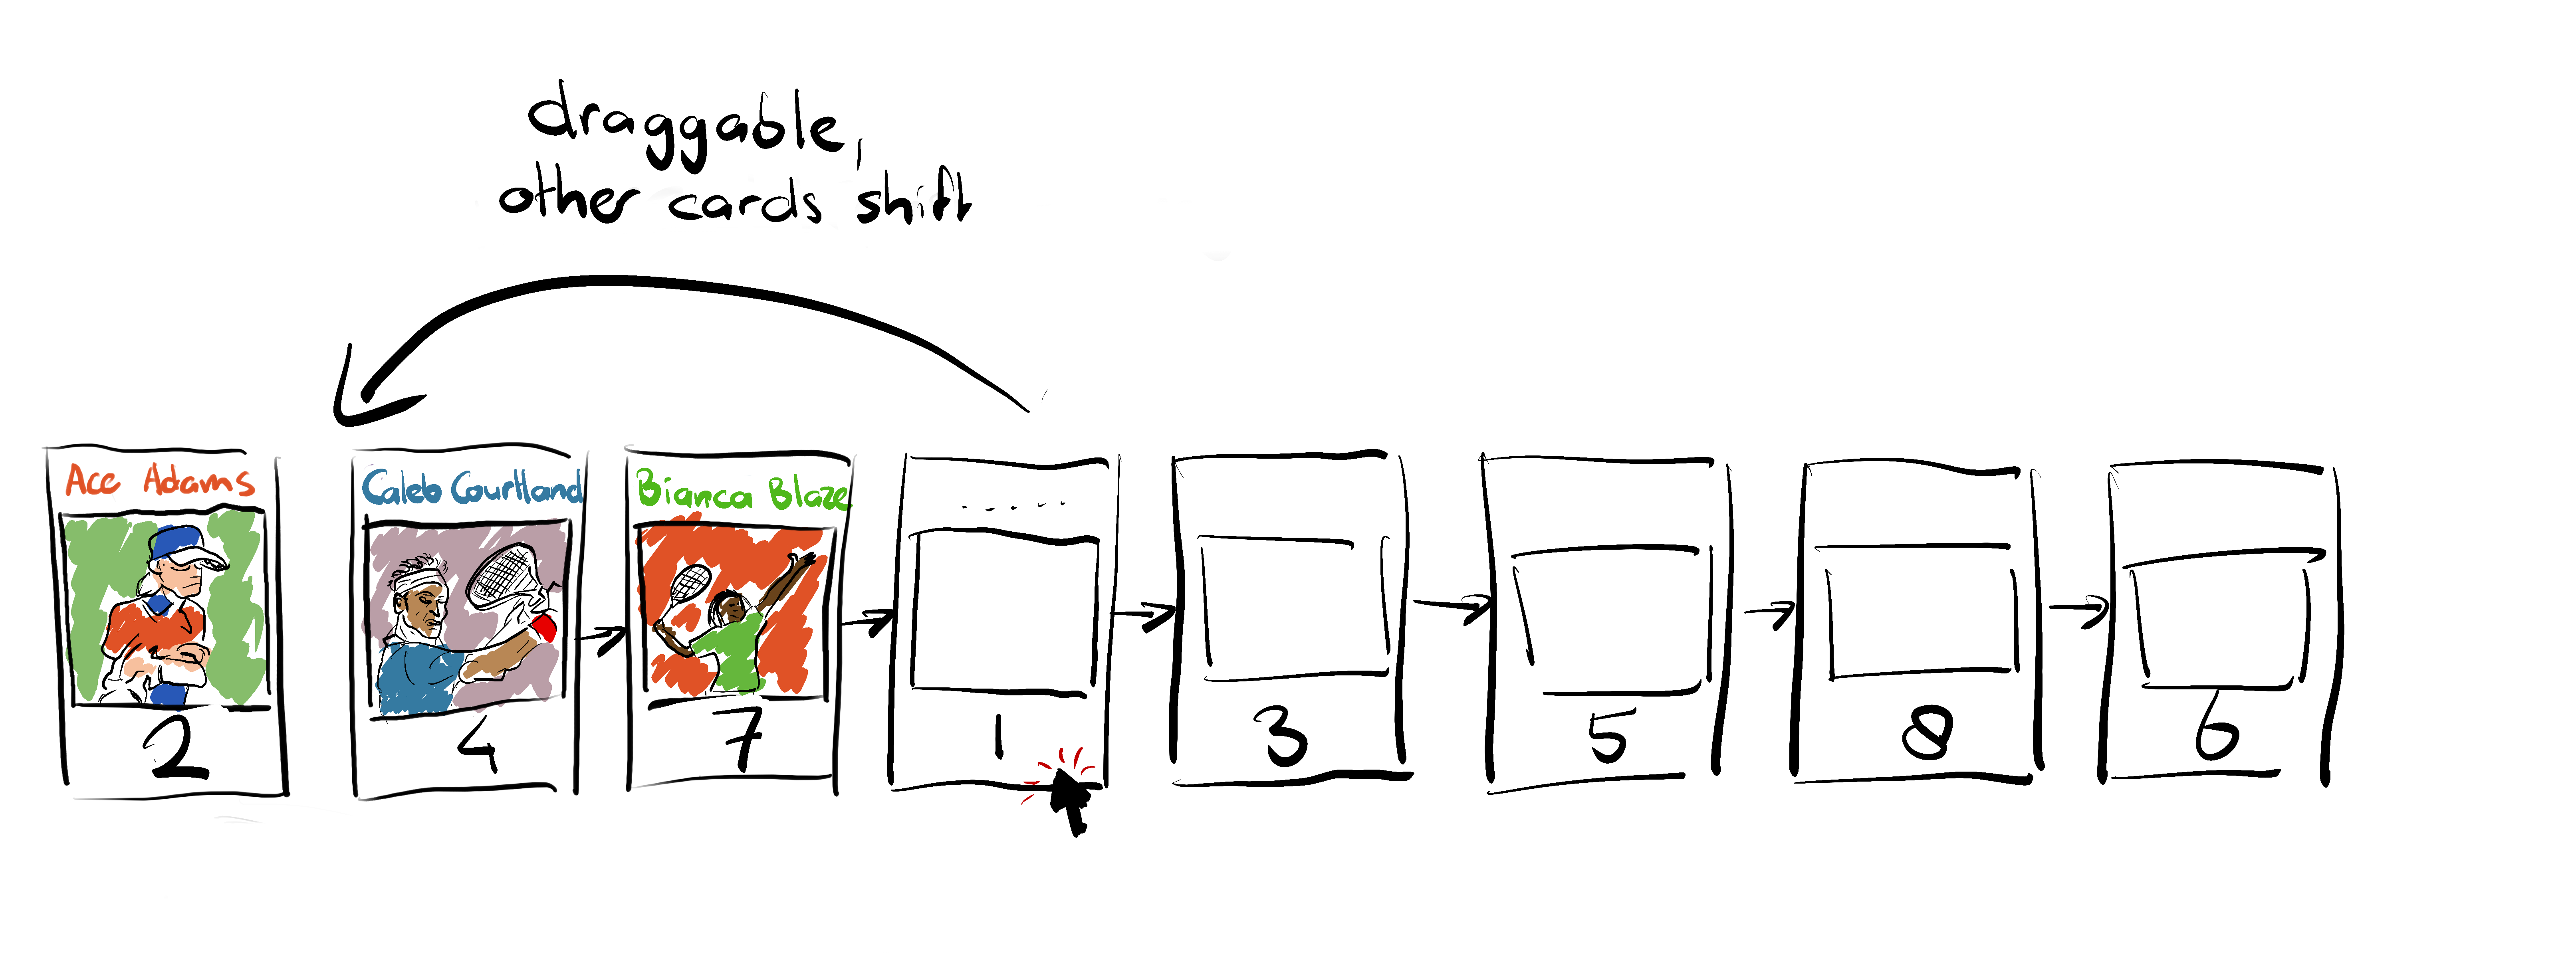 draggable,
other cards shift
Ace Adams
Caleb Courtland
Bianca Blaze
.....
2
4
7
1
3
5
8
6